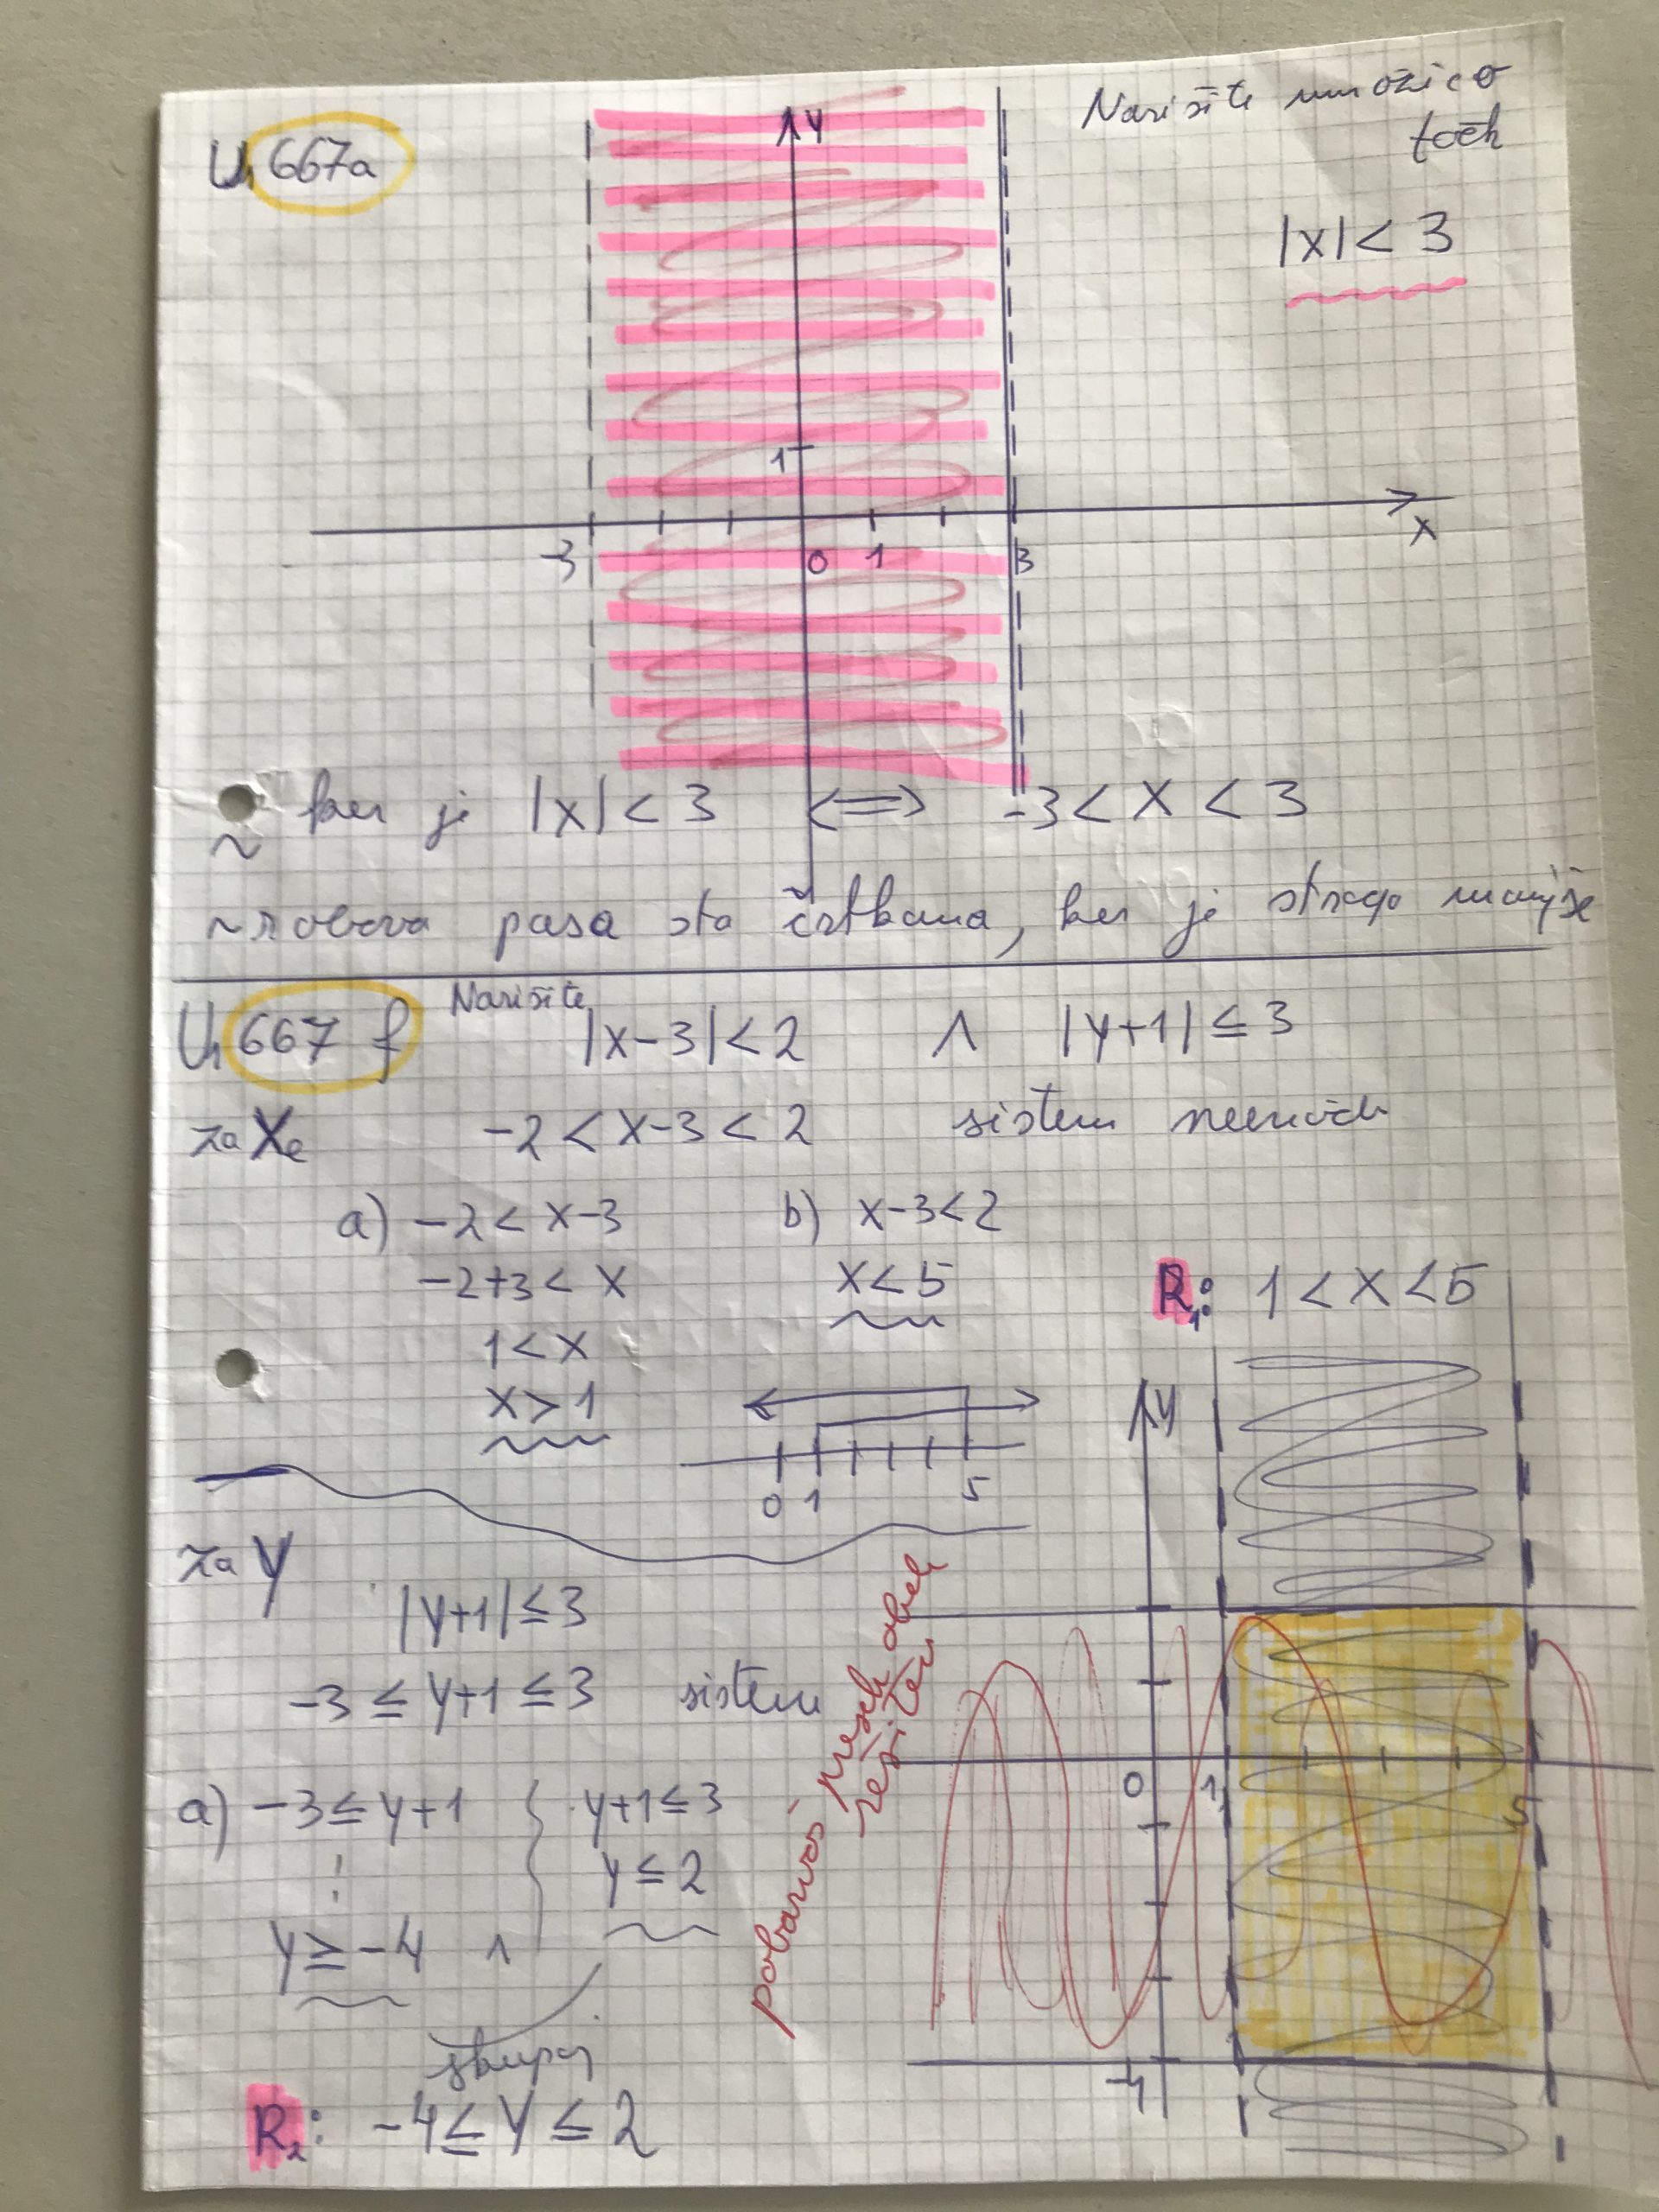 U, 667a
Narišite množico
točk
|x| < 3
y
1
-3 0 1 3 x
~ ker je |x| < 3 <=> -3 < x < 3
~ robova pasa sta črtkana, ker je strogo manjše
U, 667 f Narišite |x-3| < 2 ∧ |y+1| ≤ 3
za x -2 < x-3 < 2 sistem neenačb
a) -2 < x-3 b) x-3 < 2
-2+3 < x x < 5
R₁: 1 < x < 5
1 < x
x > 1
0 1 5
y
za y
|y+1| ≤ 3
-3 ≤ y+1 ≤ 3 sistem
pobarvaš presek obeh
rešitev
0 1 5
-4
a) -3 ≤ y+1 { y+1 ≤ 3
⋮ y ≤ 2
y ≥ -4 ∧
skupaj
R₂: -4 ≤ y ≤ 2